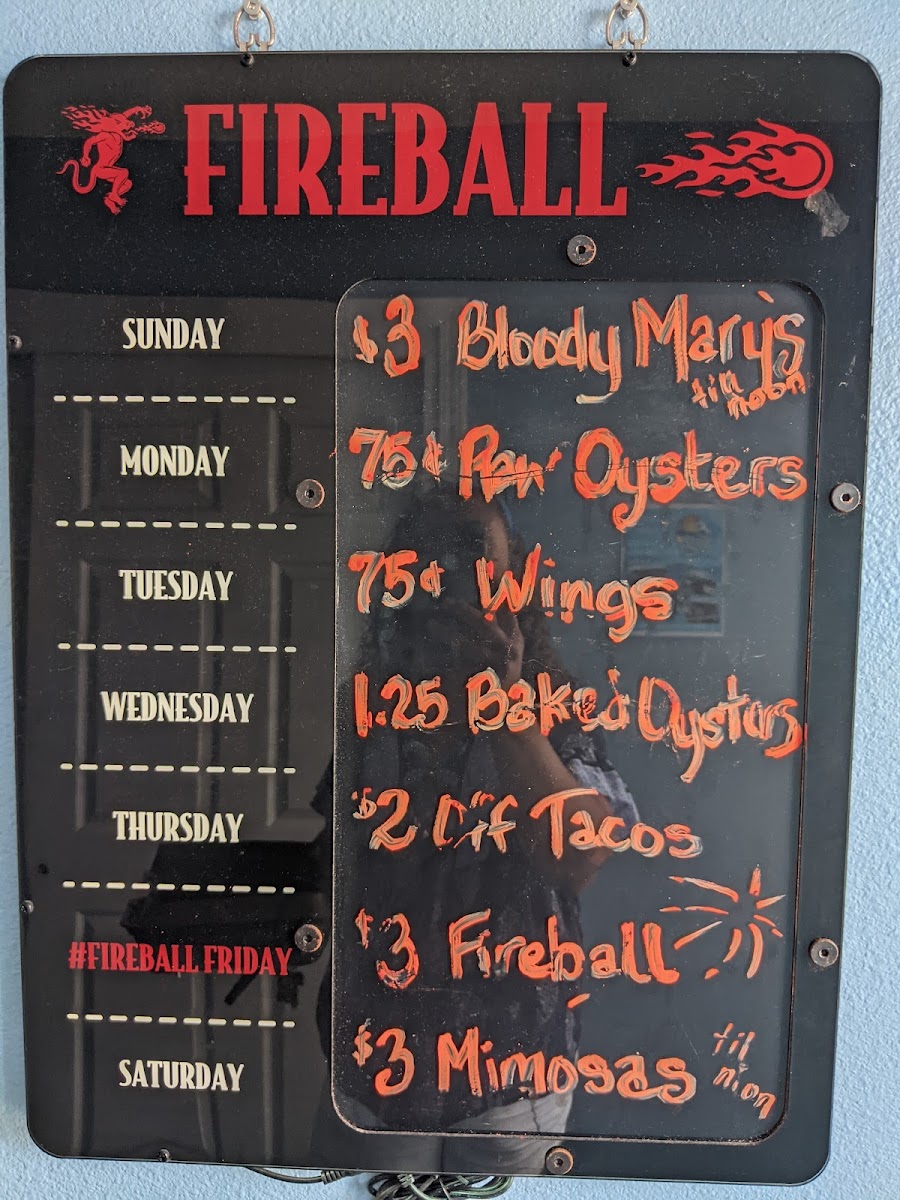 FIREBALL
SUNDAY $3 Bloody Mary's
til noon
MONDAY 75¢ Raw Oysters
TUESDAY 75¢ Wings
WEDNESDAY 1.25 Baked Oysters
THURSDAY $2 Off Tacos
#FIREBALL FRIDAY $3 Fireball
SATURDAY $3 Mimosas til noon